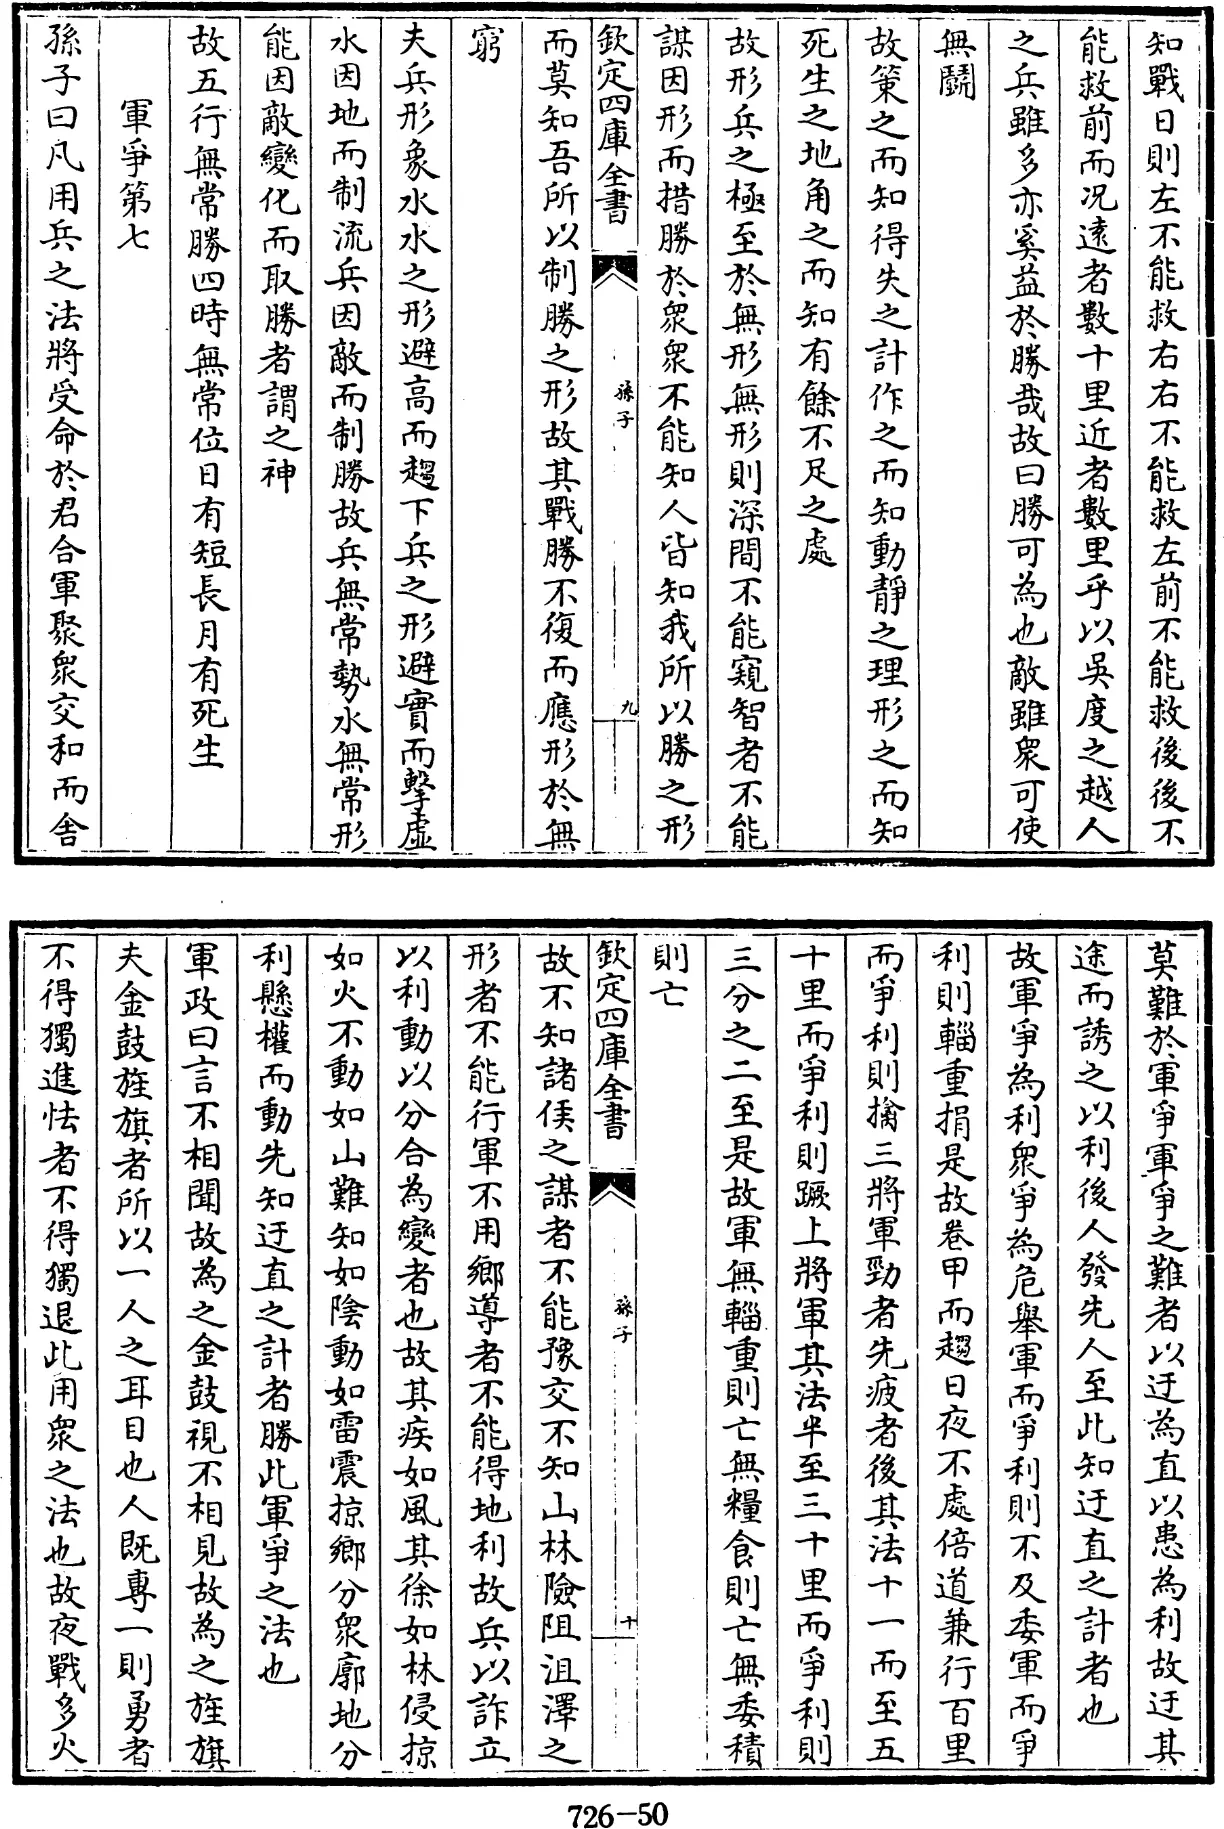 知戰日則左不能救右右不能救左前不能救後後不
能救前而况遠者數十里近者數里乎以吳度之越人
之兵雖多亦奚益於勝哉故曰勝可為也敵雖衆可使
無鬭
故策之而知得失之計作之而知動靜之理形之而知
死生之地角之而知有餘不足之處
故形兵之極至於無形無形則深間不能窺智者不能
謀因形而措勝於衆衆不能知人皆知我所以勝之形
欽定四庫全書
孫子
九
而莫知吾所以制勝之形故其戰勝不復而應形於無
窮
夫兵形象水水之形避高而趨下兵之形避實而擊虛
水因地而制流兵因敵而制勝故兵無常勢水無常形
能因敵變化而取勝者謂之神
故五行無常勝四時無常位日有短長月有死生
軍爭第七
孫子曰凡用兵之法將受命於君合軍聚衆交和而舍
莫難於軍爭軍爭之難者以迂為直以患為利故迂其
途而誘之以利後人發先人至此知迂直之計者也
故軍爭為利衆爭為危舉軍而爭利則不及委軍而爭
利則輜重捐是故卷甲而趨日夜不處倍道兼行百里
而爭利則擒三將軍勁者先疲者後其法十一而至五
十里而爭利則蹶上將軍其法半至三十里而爭利則
三分之二至是故軍無輜重則亡無糧食則亡無委積
則亡
欽定四庫全書
孫子
十
故不知諸侯之謀者不能豫交不知山林險阻沮澤之
形者不能行軍不用鄉導者不能得地利故兵以詐立
以利動以分合為變者也故其疾如風其徐如林侵掠
如火不動如山難知如陰動如雷震掠鄉分衆廓地分
利懸權而動先知迂直之計者勝此軍爭之法也
軍政曰言不相聞故為之金鼓視不相見故為之旌旗
夫金鼓旌旗者所以一人之耳目也人既專一則勇者
不得獨進怯者不得獨退此用衆之法也故夜戰多火
726-50